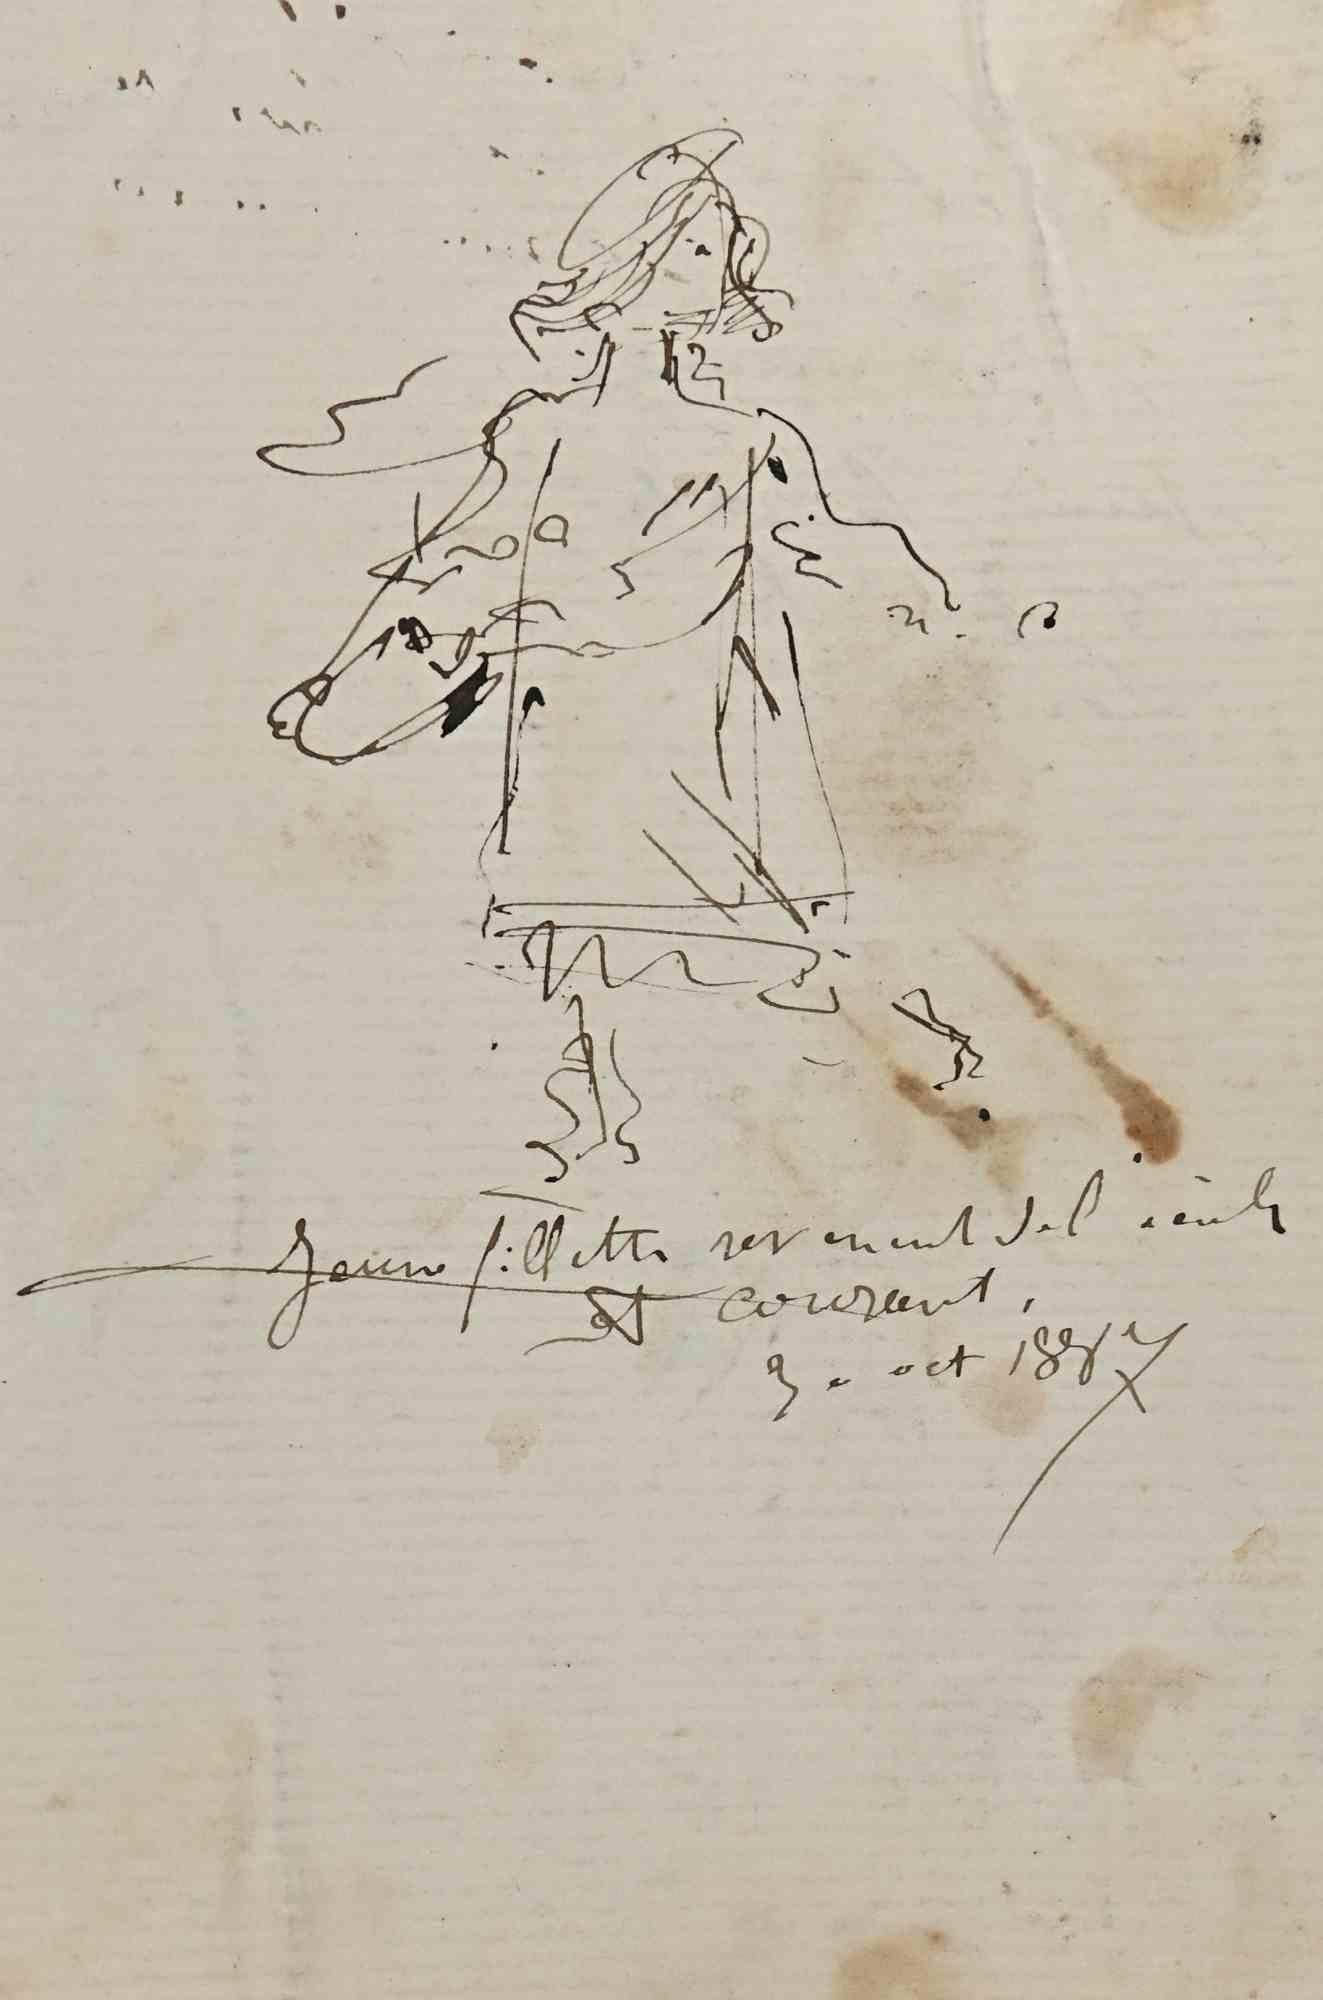 Jeune fillette revenant de l'école
et courant,
30 oct 1887